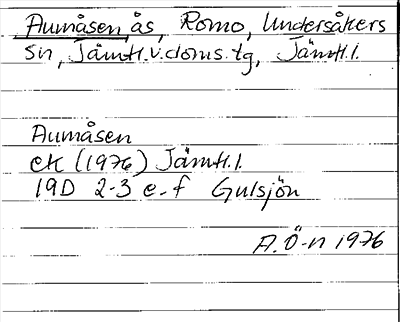 Aumåsen ås, Romo, Undersåkers
sn, Jämtl.v.doms.tg, Jämtl.l.
Aumåsen
ek (1976) Jämtl.l.
19D 2-3 e-f Gulsjön
A.Ö-n 1976